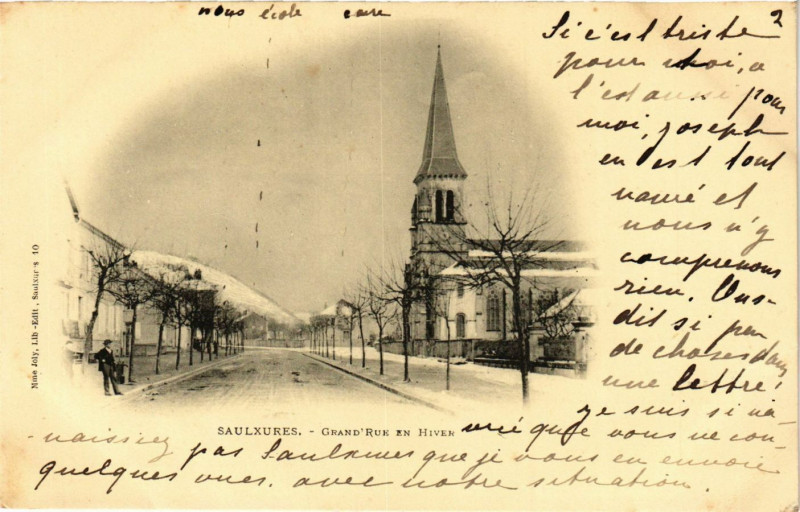 nous école cure
2
Si c'est triste
pour toi,
l'est aussi pour
moi, Joseph
en est tout
navré et
nous n'y
comprenons
rien. Ons-
dit si peu
de choses dans
une lettre!
Je suis si na-
vrée que vous ne con-
naissiez pas Saulxures que je vous en envoie
quelques vues. avec notre situation.
SAULXURES. - GRAND'RUE EN HIVER
Mme Joly, Lib.-Edit., Saulxures 10